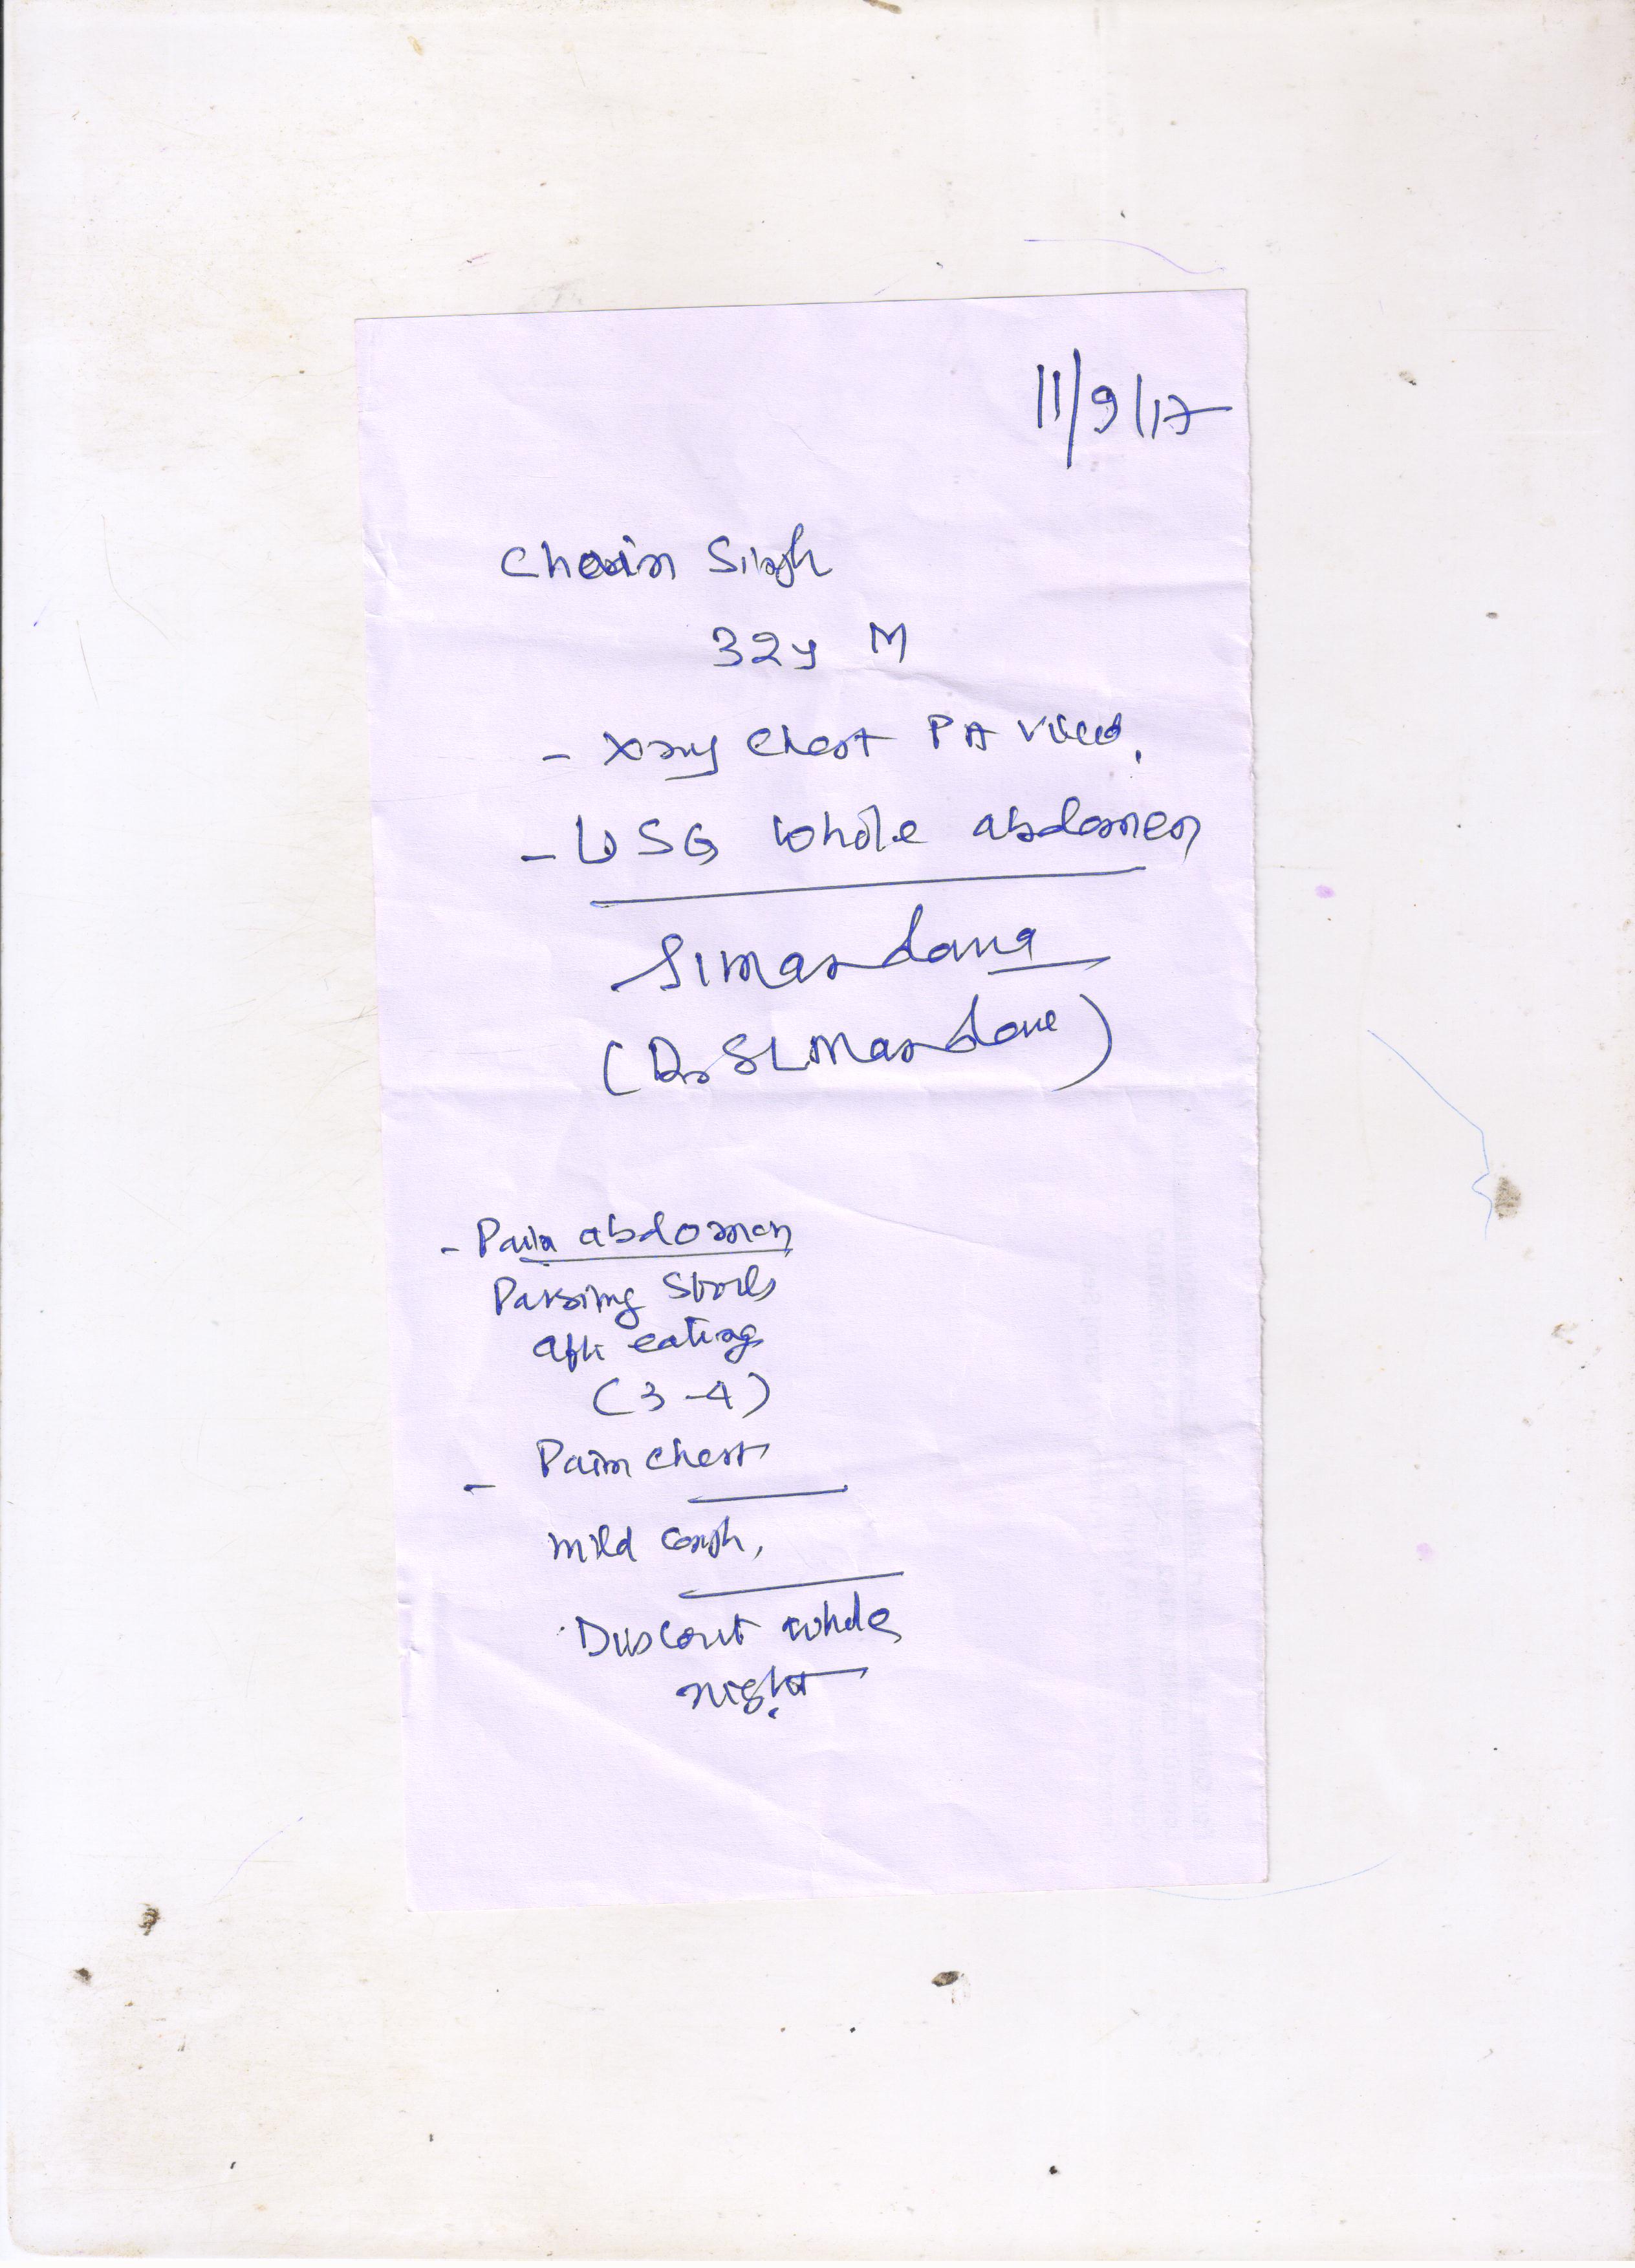 11/9/17
Chain Singh
32y M
- Xray Chest PA view.
- USG whole abdomen
(Dr SL Mandove)
- Pain abdomen
Passing Stools
after eating
(3-4)
- Pain chest
mild cough,
whole
night